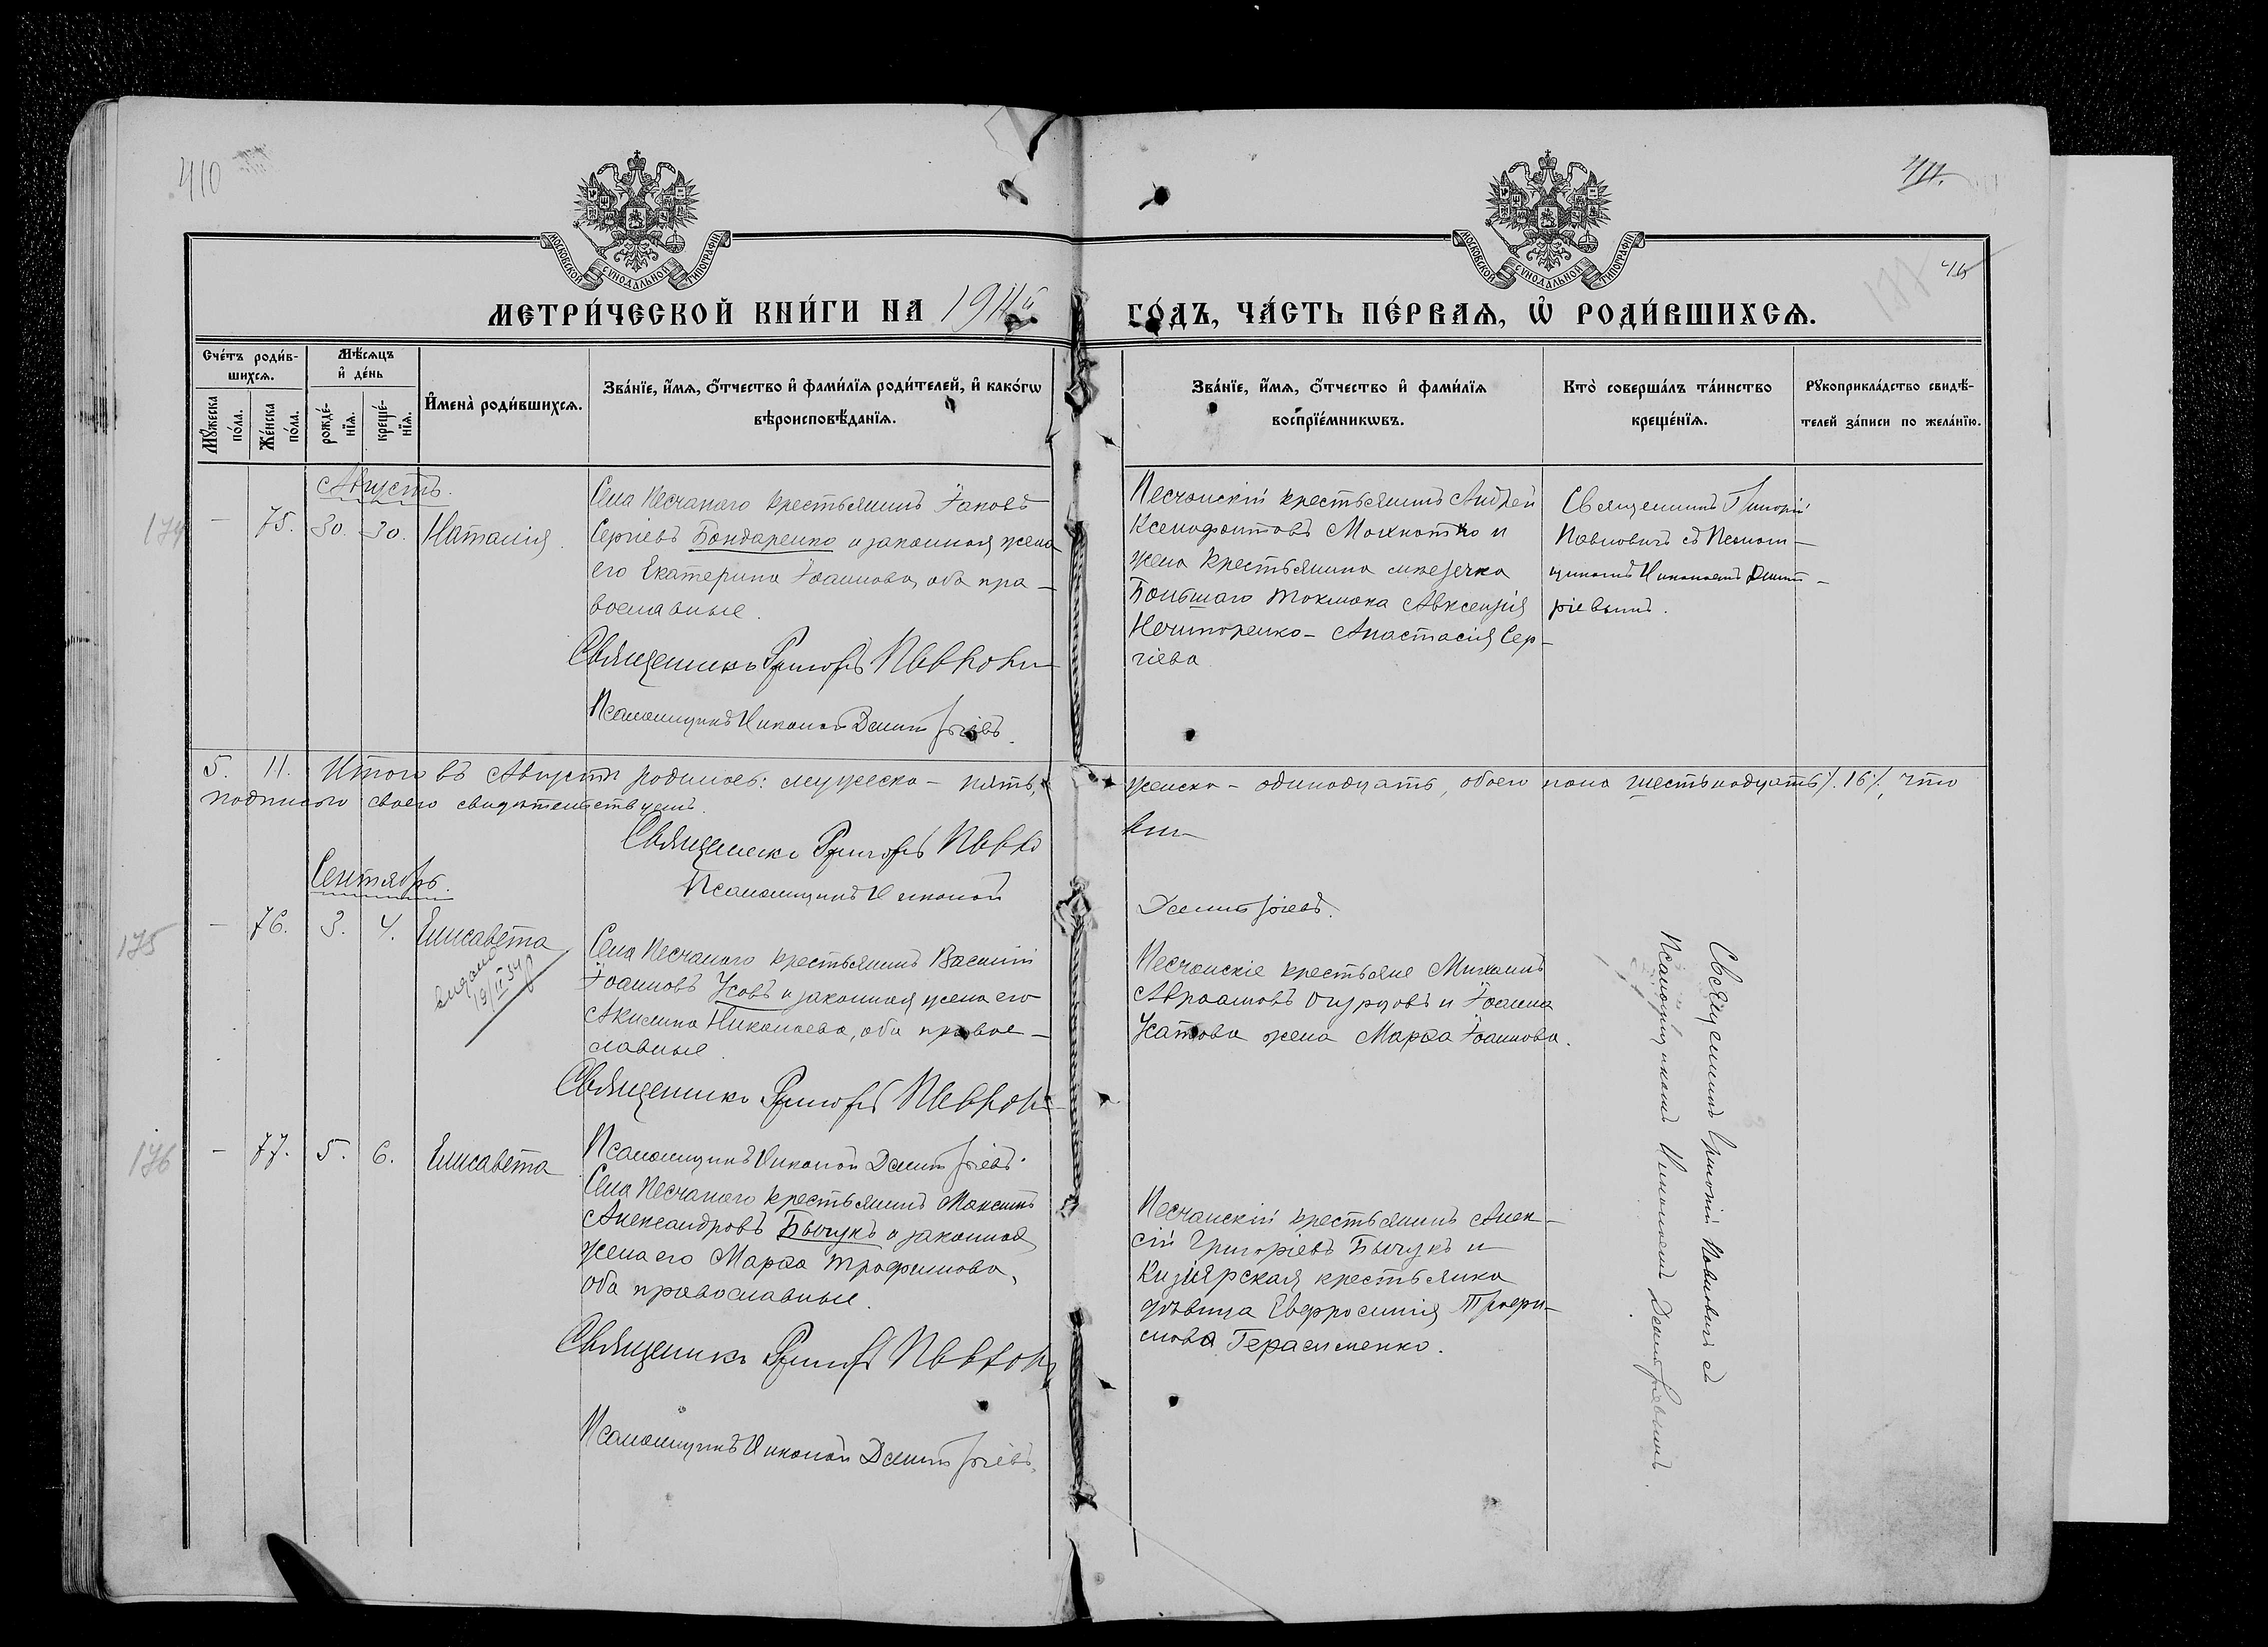 410
411.
МОСКОВСКОЙ СѴНОДАЛЬНОЙ ТИПОГРАФІИ
МОСКОВСКОЙ СѴНОДАЛЬНОЙ ТИПОГРАФІИ
МЕТРИ́ЧЕСКОЙ КНИ́ГИ НА
ГО́ДЪ, ЧА́СТЬ ПЕ́РВАѦ, Ѡ҆ РОДИ́ВШИХСѦ.
Сче́тъ роди́в-
шихсѧ.
Мꙋ́жеска по́ла.
Же́нска по́ла.
Мѣ́сѧцъ
и҆ де́нь
рожде́-
нїѧ.
креще́-
нїѧ.
И҆мена̀ роди́вшихсѧ.
Зва́нїе, и҆́мѧ, ѻ҆́тчество и҆ фами́лїѧ роди́телей, и҆ како́гѡ
вѣроисповѣ́данїѧ.
Зва́нїе, и҆́мѧ, ѻ҆́тчество и҆ фами́лїѧ
воспрїе́мникѡвъ.
Кто̀ соверша́лъ та́инство
креще́нїѧ.
Рꙋкоприкла́дство свидѣ́-
телей за́писи по жела́нїю.
174
Августъ.
— 75. 30. 30. Наталія.
Села Песчанаго крестьянинъ Іаковъ
Сергіевъ Бондаренко и законная жена
его Екатерина Іоаннова, оба пра-
вославные.
Священникъ Григорій Павлови
Псаломщикъ Николай Димитріевъ.
Песчанскій крестьянинъ Андрей
Ксенофонтовъ и
жена крестьянина мѣстечка
Большаго Токмака Авксентія
Нечипоренко - Анастасія Сер-
гіева
Священникъ Григорій
Павловичъ съ Псалом-
щикомъ Николаемъ Димит-
ріевымъ.
5. 11. Итого въ Августѣ родилось: мужеска - пять,
женска - одинадцать, обоего пола шестьнадцать /.16/., что
подписомъ своего свидѣтельствуемъ.
Священникъ Григорій Павло
вич
Псаломщикъ Николай
Димитріевъ.
Сентябрь.
175
— 76. 3. 4. Елисавета
выдано
19/II 54
Села Песчанаго крестьянинъ Василій
Іоанновъ Усовъ и законная жена его
Акилина Николаева, оба правос-
лавные.
Священникъ Григорій Павлови
Псаломщикъ Николай Димитріевъ.
Песчанскіе крестьяне Михаилъ
Авраамовъ Огурцовъ и Іоанна
Усатова жена Марѳа Іоаннова.
Священникъ Григорій Павловичъ съ
Псаломщикомъ Николаемъ Димитріевымъ.
176
— 77. 5. 6. Елисавета
Села Песчанаго крестьянинъ Максимъ
Александровъ Бычукъ и законная
жена его Марѳа Трофимова,
оба православные.
Священникъ Григорій Павлови
Псаломщикъ Николай Димитріевъ.
Песчанскій крестьянинъ Алек-
сій Григоріевъ Бычукъ и
Кизіярская крестьянка
дѣвица Евфросинія Трофи-
мова Герасименко.